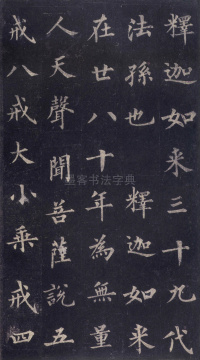 釋迦如来三十九代
法孫也 釋迦如来
在世八十年為無量
人天聲聞菩薩說五
戒八戒大小乘戒四
墨客书法字典